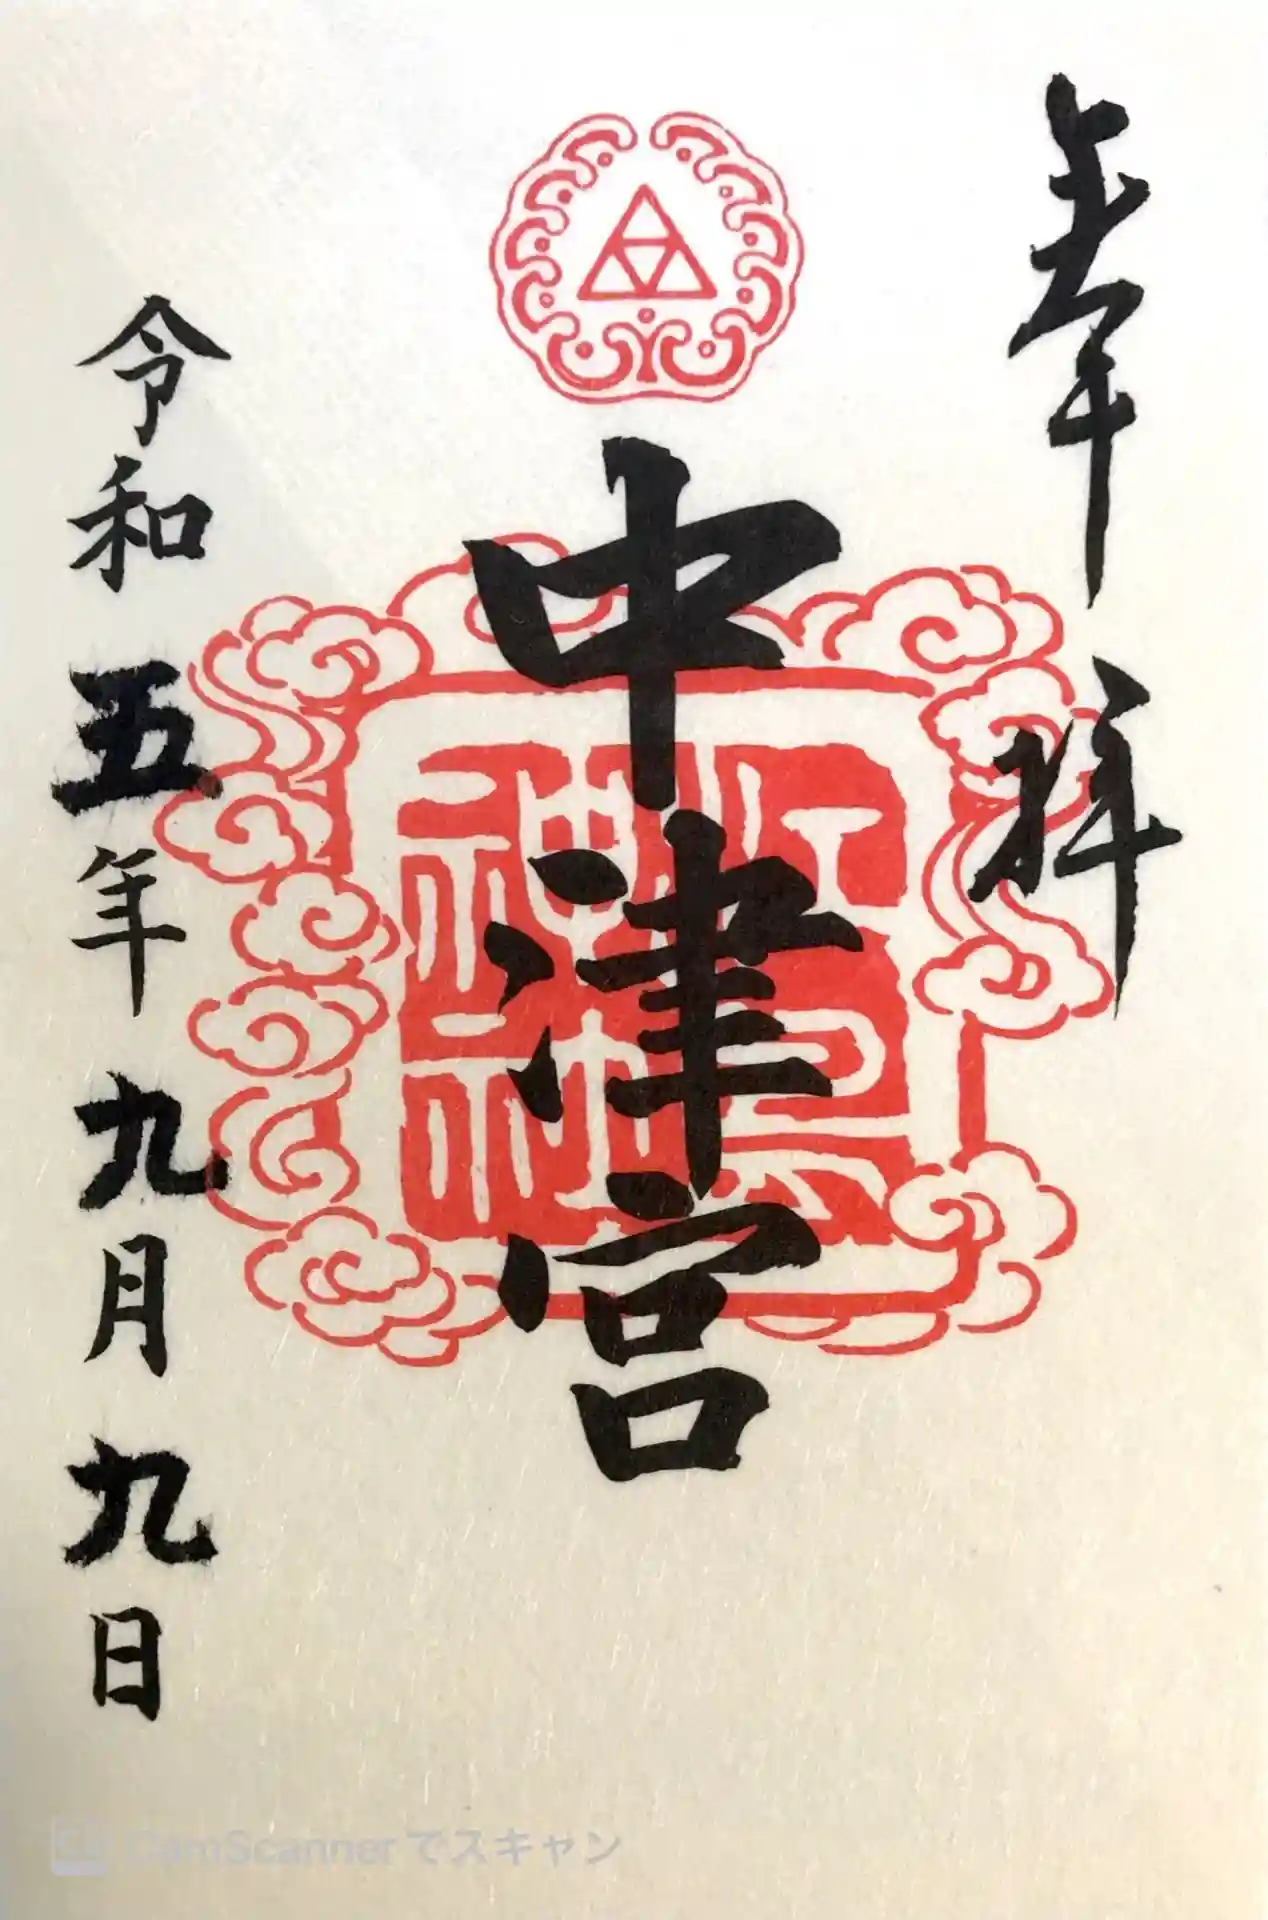 奉拝
中津宮
令和五年九月九日
CamScannerでスキャン